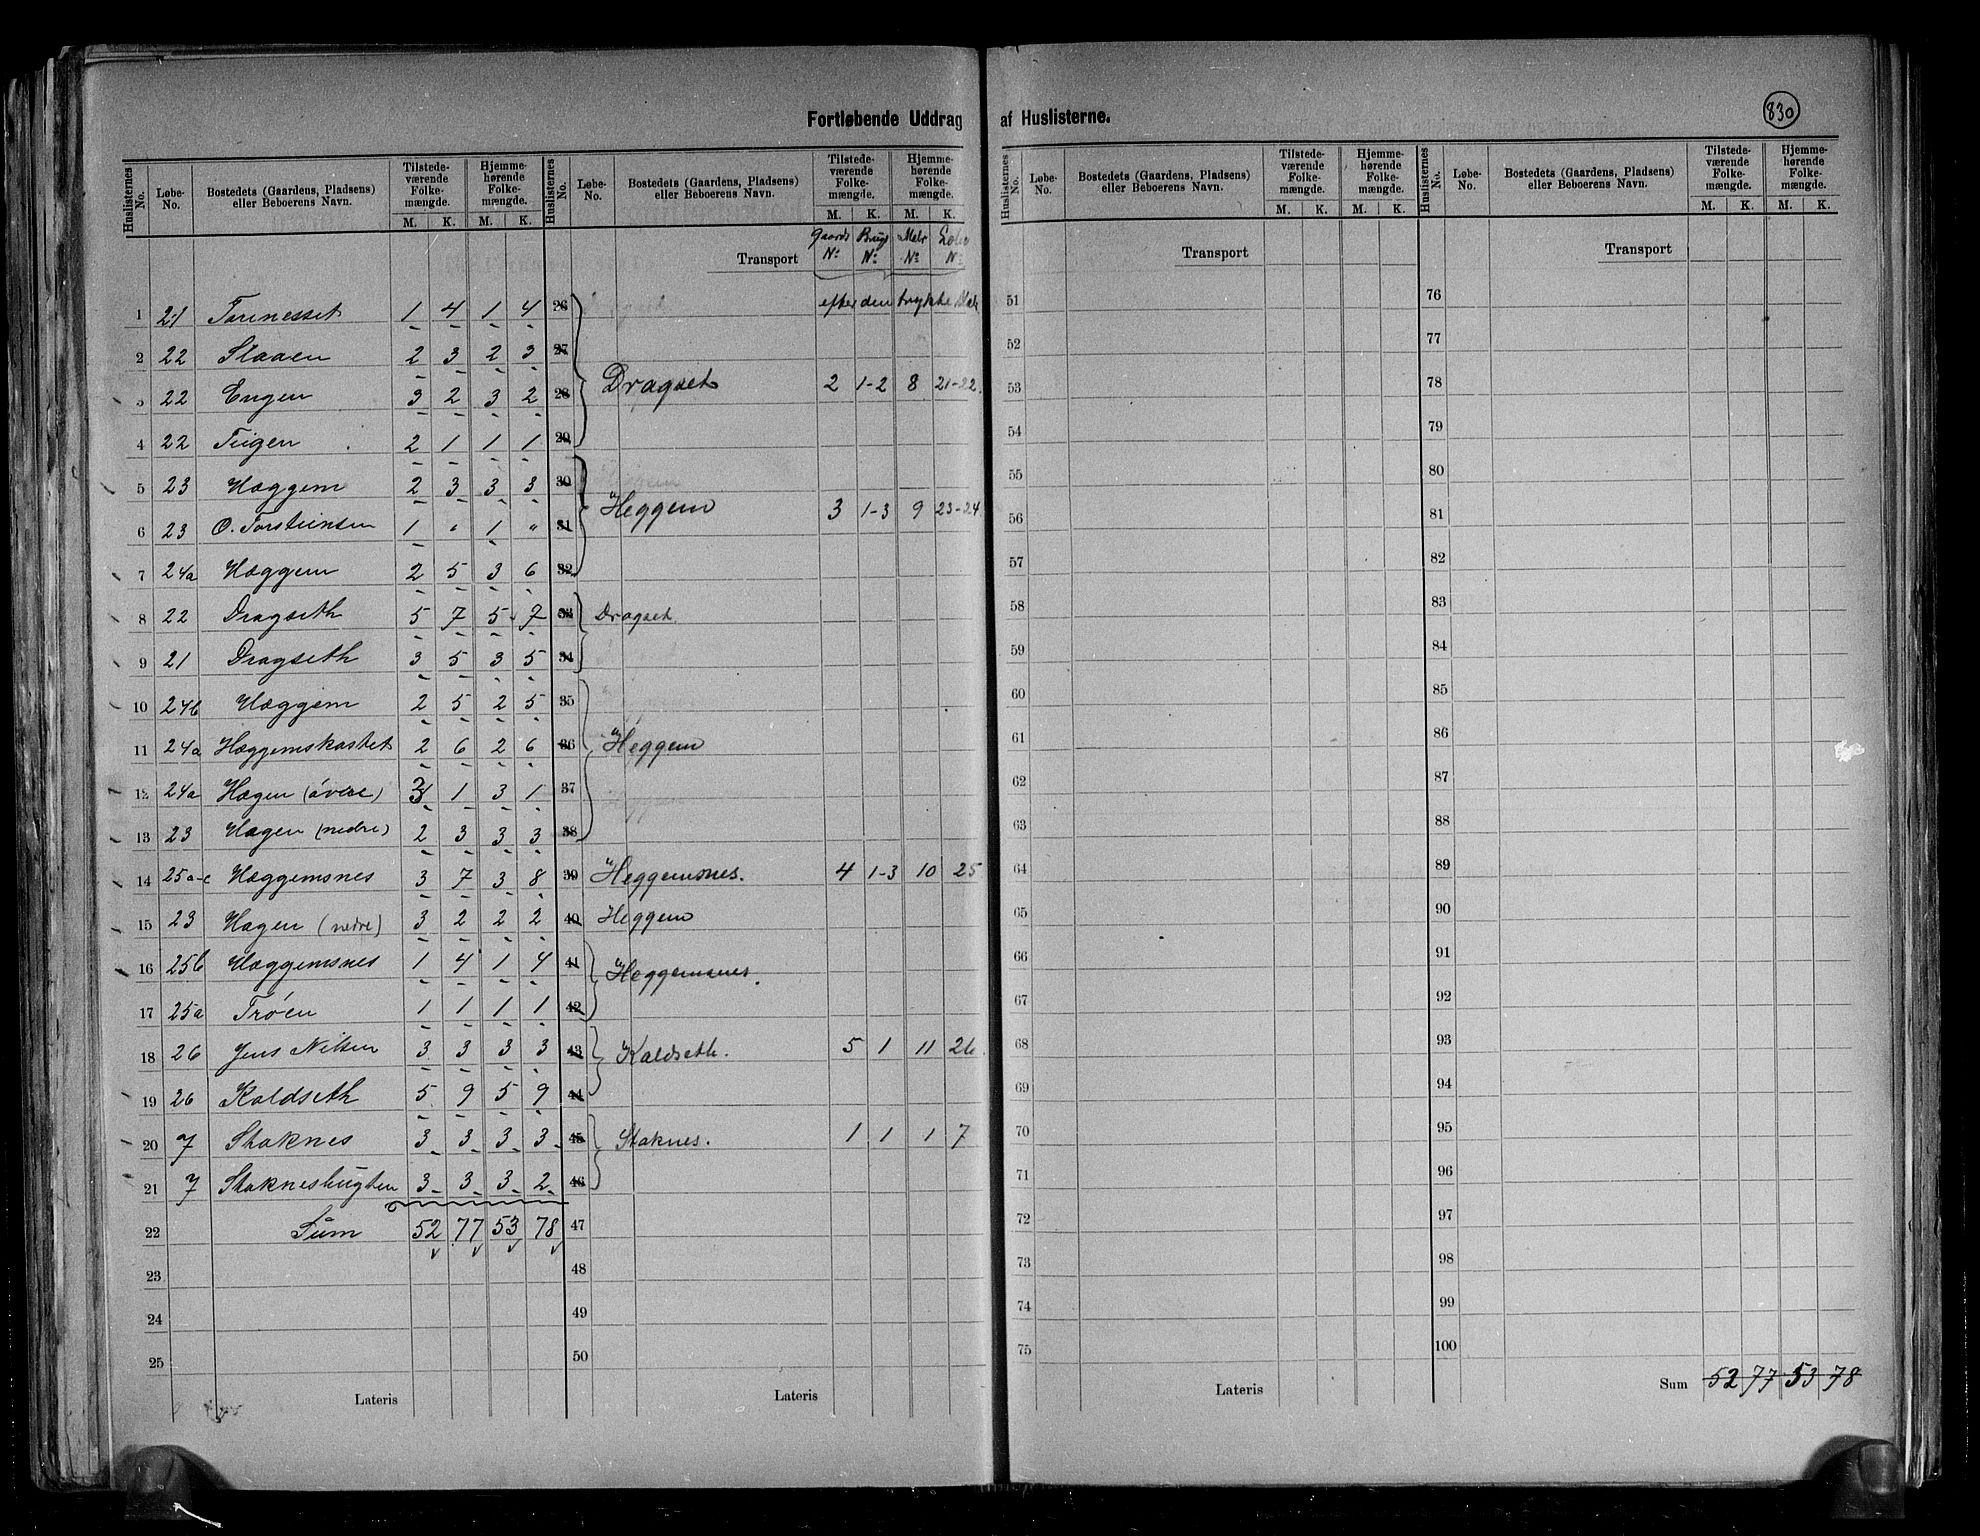 Fortløbende Uddrag af Huslisterne.
830
Huslisternes No. | Løbe-No. | Bostedets (Gaardens, Pladsens) eller Beboerens Navn. | Tilstedeværende Folkemængde. M. K. | Hjemmehørende Folkemængde. M. K.
1 21 Torenesset 1 4 1 4
2 22 Slaaen 2 3 2 3
3 22 Engen 3 2 3 2
4 22 Teigen 2 1 1 1
5 23 Hæggem 2 3 3 3
6 23 O. Torsteinsen 1 " 1 "
7 24a Hæggem 2 5 3 6
8 22 Dragseth 5 7 5 7
9 21 Dragseth 3 5 3 5
10 24b Hæggem 2 5 2 5
11 24a Hæggemskastet 2 6 2 6
12 24a Hagen (övere) 3 1 3 1
13 23 Hagen (nedre) 2 3 3 3
14 25a-c Hæggemsnes 3 7 3 8
15 23 Hagen (nedre) 3 2 2 2
16 25b Hæggemsnes 1 4 1 4
17 25a Trøen 1 1 1 1
18 26 Jens Nilsen 3 3 3 3
19 26 Kaldseth 5 9 5 9
20 7 Staknes 3 3 3 3
21 7 Staknesbugten 3 3 3 2
22 Sum 52 77 53 78
23
24
25
Lateris
Huslisternes No. | Løbe-No. | Bostedets (Gaardens, Pladsens) eller Beboerens Navn. | Tilstedeværende Folkemængde. M. K. | Hjemmehørende Folkemængde. M. K.
Transport Gaards No: Brugs No: Matr No: Løbe No:
26 efter den trykte Matr
27
28 Dragset 2 1-2 8 21-22.
29
30
31 Heggem 3 1-3 9 23-24
32
33 Dragset.
34
35
36 Heggem
37
38
39 Heggemsnes. 4 1-3 10 25
40 Heggem
41 Heggemsnes.
42
43 Kaldseth. 5 1 11 26.
44
45 Staknes. 1 1 1 7
46
47
48
49
50
Lateris
Huslisternes No. | Løbe-No. | Bostedets (Gaardens, Pladsens) eller Beboerens Navn. | Tilstedeværende Folkemængde. M. K. | Hjemmehørende Folkemængde. M. K.
Transport
51
52
53
54
55
56
57
58
59
60
61
62
63
64
65
66
67
68
69
70
71
72
73
74
75
Lateris
Huslisternes No. | Løbe-No. | Bostedets (Gaardens, Pladsens) eller Beboerens Navn. | Tilstedeværende Folkemængde. M. K. | Hjemmehørende Folkemængde. M. K.
Transport
76
77
78
79
80
81
82
83
84
85
86
87
88
89
90
91
92
93
94
95
96
97
98
99
100
Sum 52 77 53 78